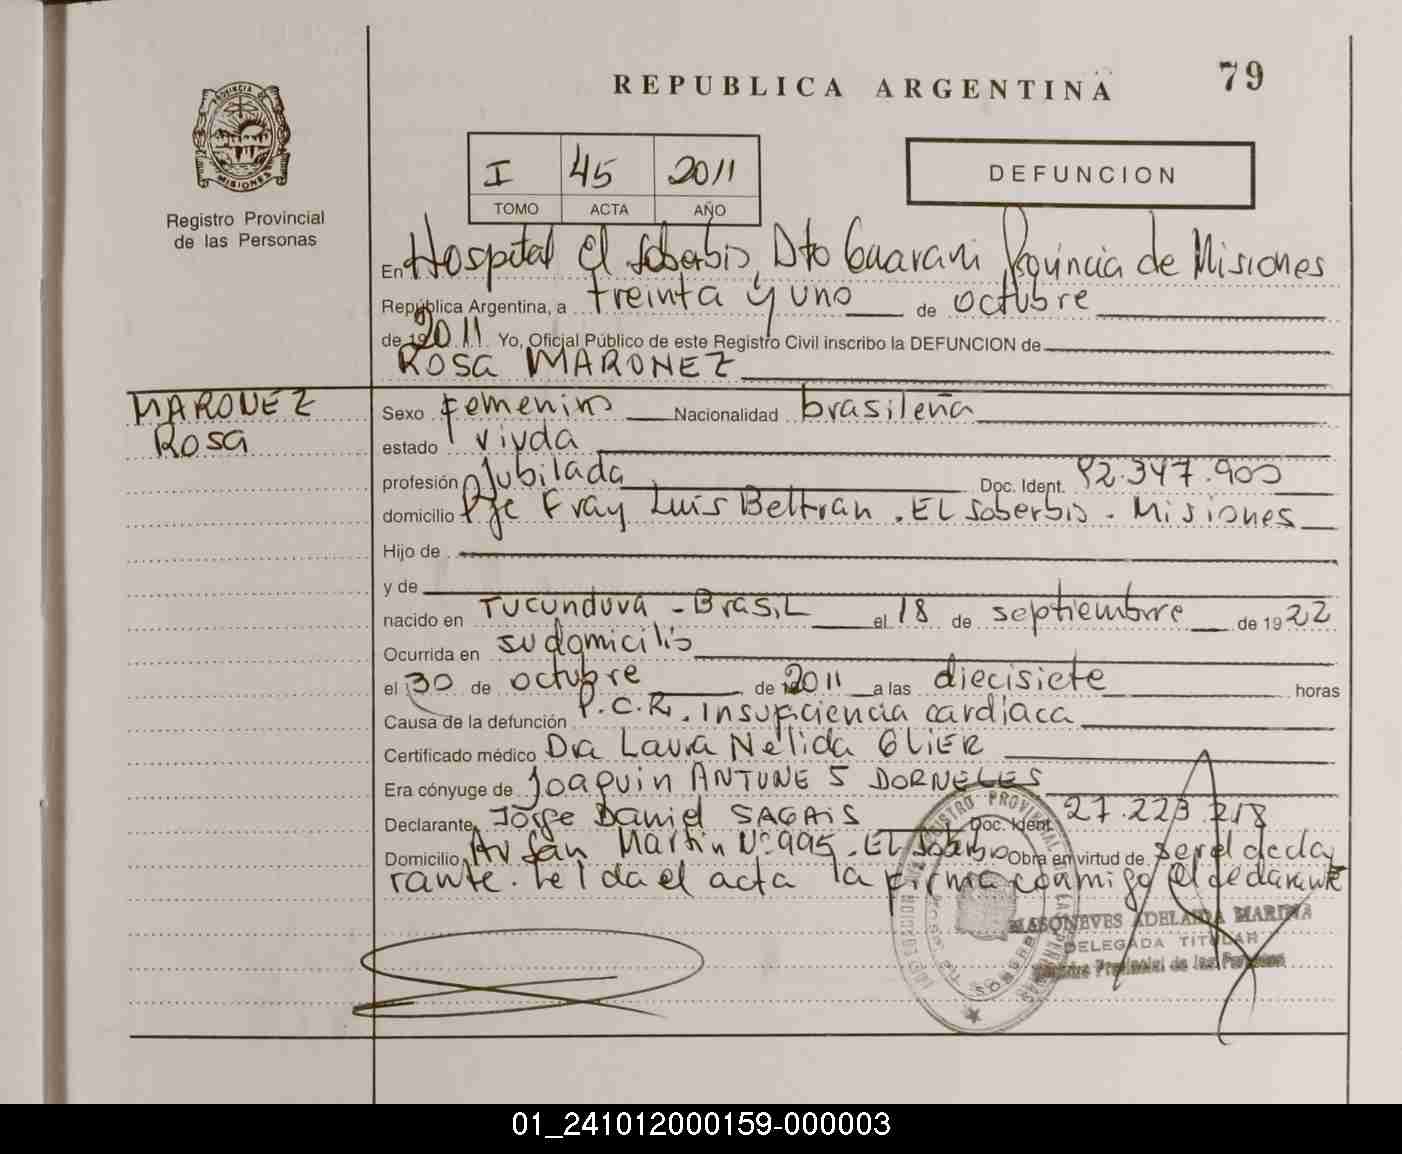 79
REPUBLICA ARGENTINA
PROVINCIA DE
MISIONES
Registro Provincial
de las Personas
I 45 2011
TOMO ACTA AÑO
DEFUNCION
En Hospital El Soberbio, Dto Guarani Provincia de Misiones
República Argentina, a treinta y uno de octubre
de 2011 Yo, Oficial Público de este Registro Civil inscribo la DEFUNCION de
ROSA MARONEZ
MARONEZ
Rosa
Sexo femenino Nacionalidad brasileña
estado viuda
profesión Jubilada Doc. Ident. 92.347.903
domicilio Pje Fray Luis Beltran. EL Soberbio. Misiones
Hijo de
y de
nacido en Tucunduva - BrasiL el 18 de septiembre de 1922
Ocurrida en su domicilio
el 30 de octubre de 2011 a las diecisiete horas
Causa de la defunción P.C.R. Insuficiencia cardiaca
Certificado médico Dra Laura Nelida OLIER
Era cónyuge de Joaquin ANTUNES DORNELES
Declarante Jorge Daniel SAGAIS Doc. Ident. 27.223.218
Domicilio Av San Martin Nº 995. EL Soberbio Obra en virtud de ser el decla
rante. Leida el acta la firma conmigo el declarante
MASONEVES ADELAIDA MARINA
DELEGADA TITULAR
Registro Provincial de las Personas
REGISTRO PROVINCIAL DE LAS PERSONAS
SOBERBIO
01_241012000159-000003